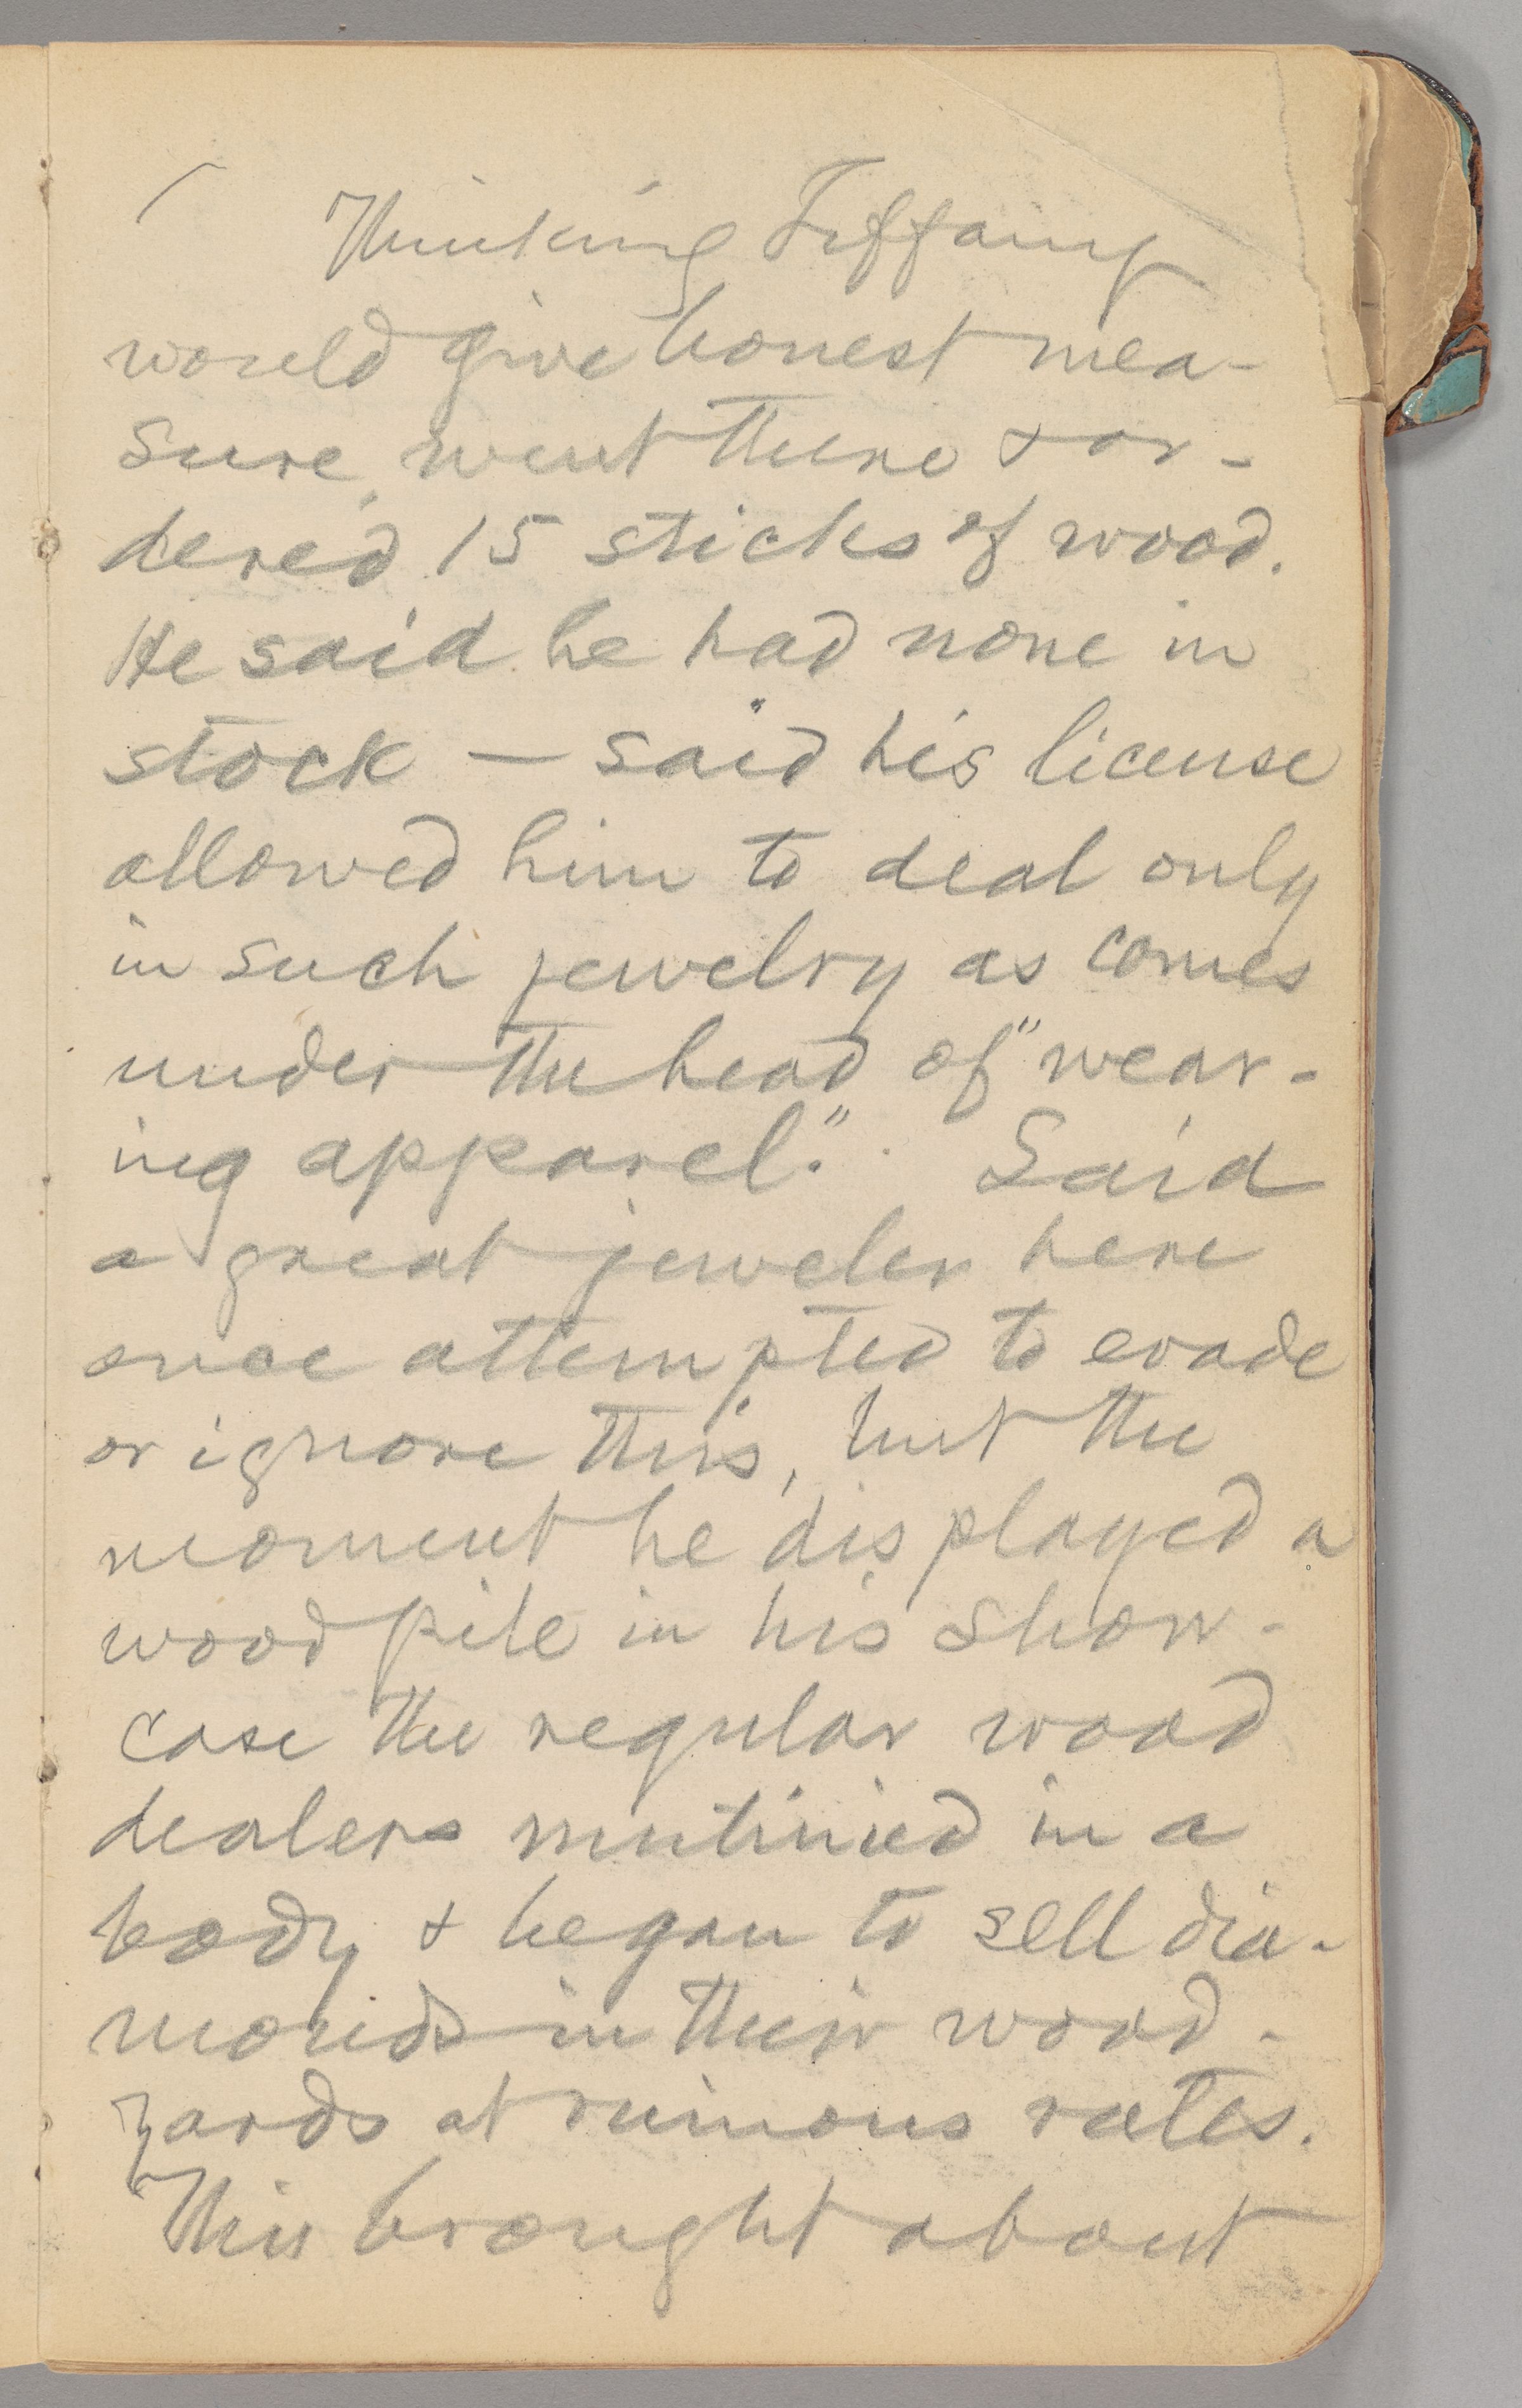 Thinking Tiffany
would give honest mea-
sure, went there & or-
dered 15 sticks of wood.
He said he had none in
stock — said his license
allowed him to deal only
in such jewelry as comes
under the head of "wear-
ing apparel." Said
a great jeweler here
once attempted to evade
or ignore this, but the
moment he displayed a
wood pile in his show-
case the regular wood
dealers mutinied in a
body & began to sell dia-
monds in their wood-
yards at ruinous rates.
This brought about